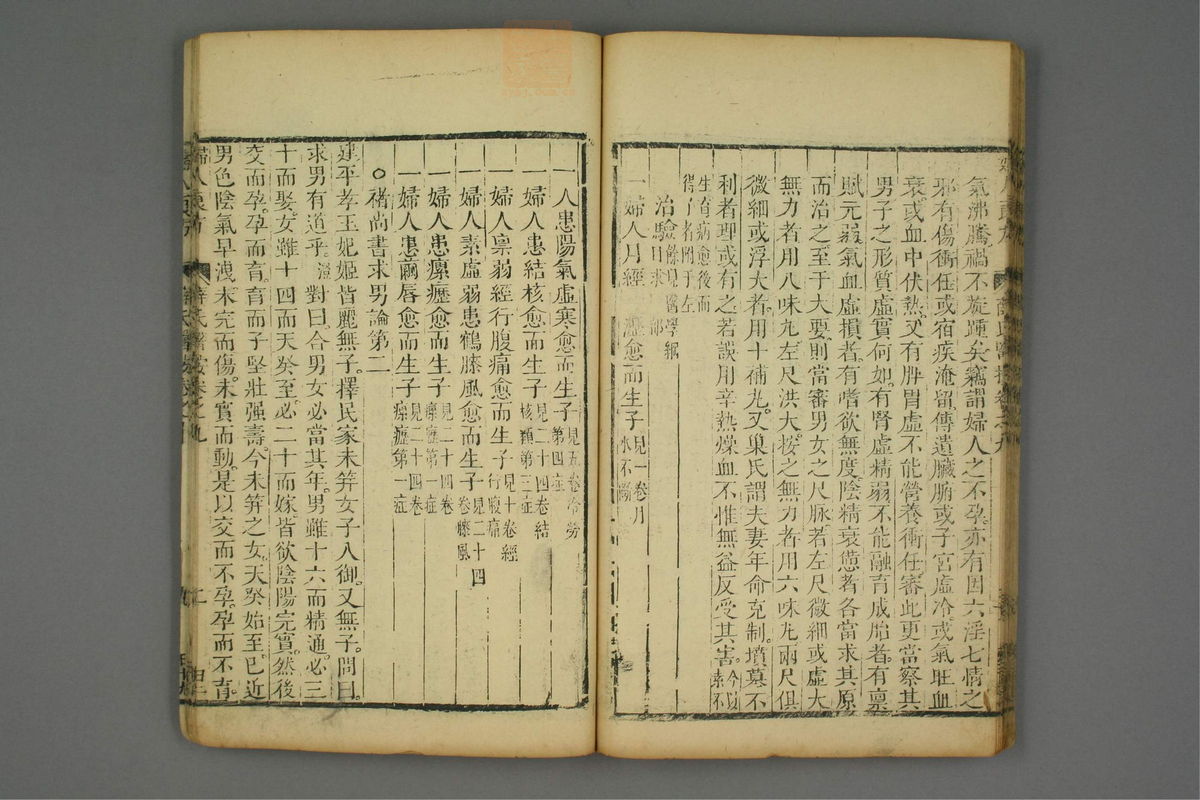 氣沸騰禍不旋踵矣竊謂婦人之不孕亦有因六淫七情之
邪有傷衝任或宿疾淹留傳遺臟腑或子宮虛冷或氣旺血
衰或血中伏熱又有脾胃虛不能營養衝任審此更當察其
男子之形質虛實何如有腎虛精弱不能融育成胎者有禀
賦元弱氣血虛損者有嗜欲無度陰精衰憊者各當求其原
而治之至于大要則當審男女之尺脉若左尺微細或虛大
無力者用八味丸左尺洪大按之無力者用六味丸兩尺俱
微細或浮大者用十補丸又巢氏謂夫妻年命克制墳墓不
利者理或有之若誤用辛熱燥血不惟無益反受其害今以素不
生育病愈後而得子者附于左
治驗餘見醫學綱目求 部
一婦人月經 瀝愈而生子見一卷月水不斷
一人患陽氣虛寒愈而生子見五卷冷勞第四症
一婦人患結核愈而生子見二十四卷結核第三症
一婦人禀弱經行腹痛愈而生子見十卷經行腹痛
一婦人素虛弱患鶴膝風愈而生子見二十四卷膝風
一婦人患瘰癧愈而生子見二十四卷瘰癧第一症
一婦人患繭唇愈而生子見二十四卷瘰癧第一症
○褚尚書求男論第二
建平孝王妃姬皆麗無子擇民家未笄女子入御又無子問曰
求男有道乎澄對曰合男女必當其年男雖十六而精通必三
十而娶女雖十四而天癸至必二十而嫁皆欲陰陽完實然後
交而孕孕而育育而子堅壯强壽今未笄之女天癸始至已近
男色陰氣早洩未完而傷未實而動是以交而不孕孕而不育